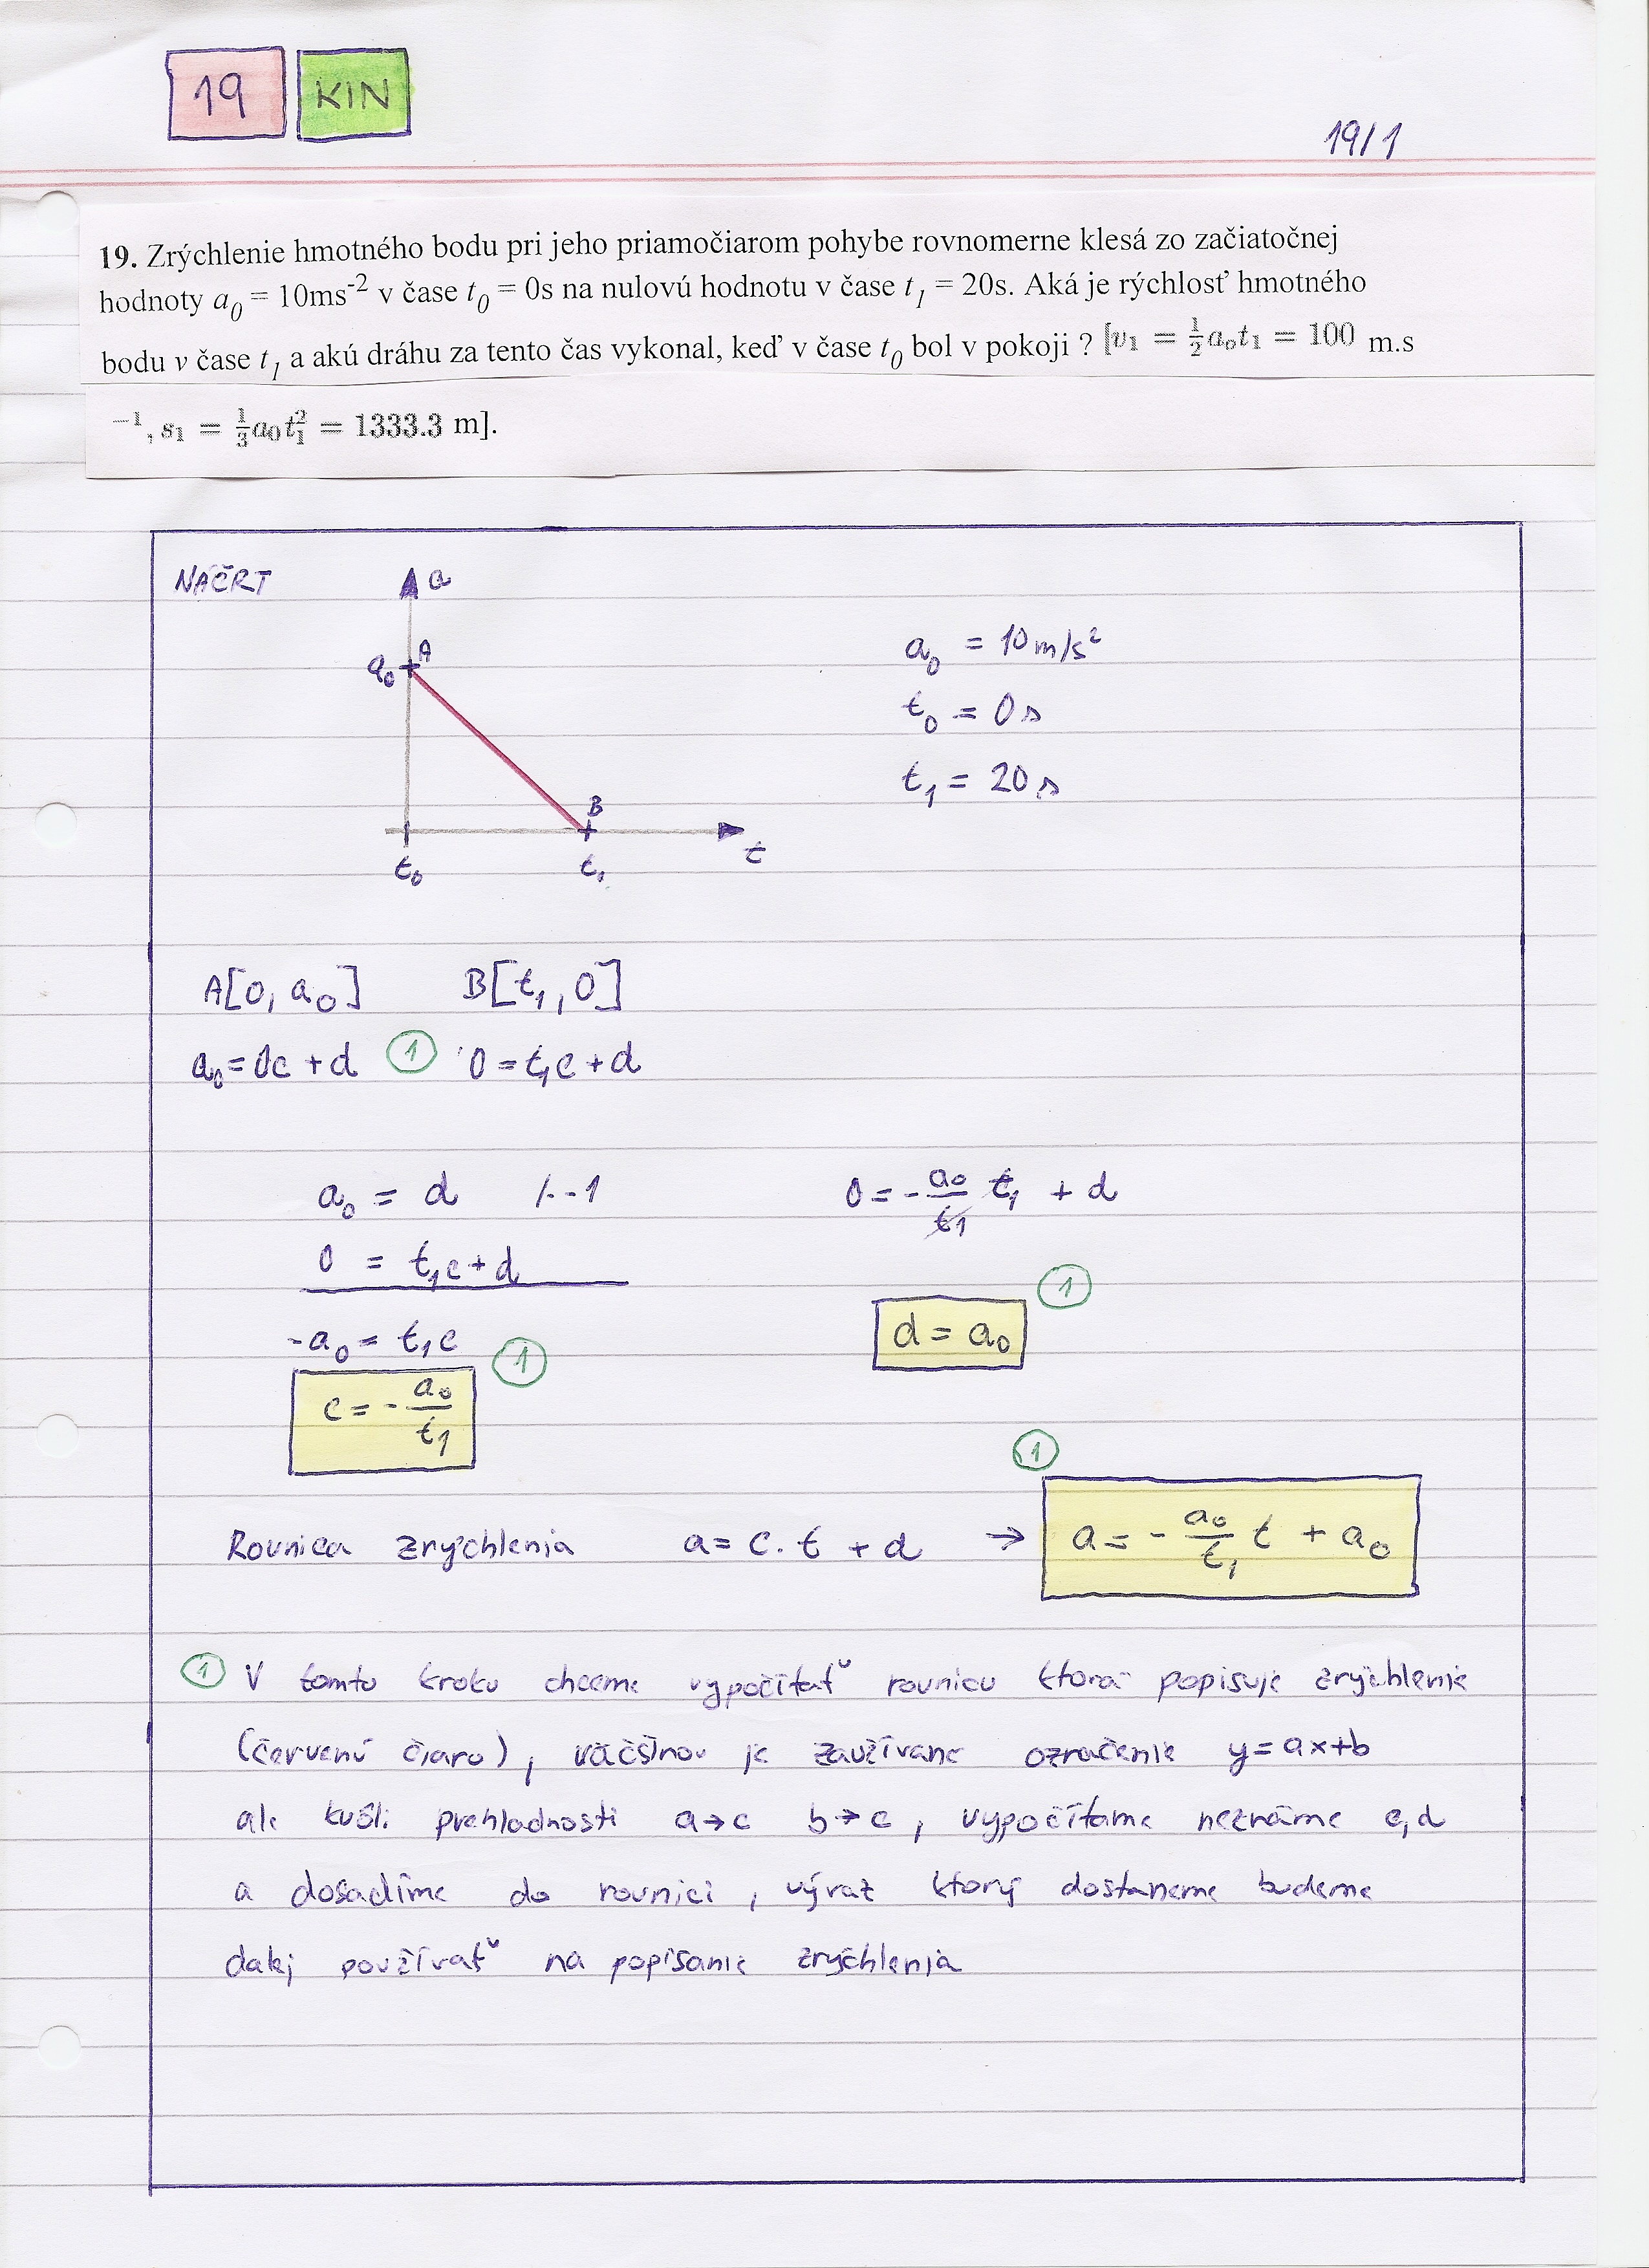 19 KIN
19/1
19. Zrýchlenie hmotného bodu pri jeho priamočiarom pohybe rovnomerne klesá zo začiatočnej
hodnoty a₀ = 10ms⁻² v čase t₀ = 0s na nulovú hodnotu v čase t₁ = 20s. Aká je rýchlosť hmotného
bodu v čase t₁ a akú dráhu za tento čas vykonal, keď v čase t₀ bol v pokoji ? [v₁ = ½a₀t₁ = 100 m.s
⁻¹, s₁ = ⅓a₀t₁² = 1333.3 m].
NÁČRT
a
a₀ A
B
t₀ t₁ t
a₀ = 10m/s²
t₀ = 0s
t₁ = 20s
A[0, a₀] B[t₁, 0]
a₀ = 0c + d ① 0 = t₁c + d
a₀ = d /·-1
0 = t₁c + d
-a₀ = t₁c
c = -a₀/t₁ ①
0 = -a₀/t₁ t₁ + d
d = a₀ ①
①
Rovnica zrýchlenia a = c . t + d → a = -a₀/t₁ t + a₀
① V tomto kroku chceme vypočítať rovnicu ktorá popisuje zrýchlenie
(červenú čiaru), väčšinou je zaužívané označenie y=ax+b
ale kvôli prehladnosti a→c b→c, vypočítame neznáme c,d
a dosadíme do rovnici, výraz ktorý dostaneme budeme
dalej používať na popísanie zrýchlenia